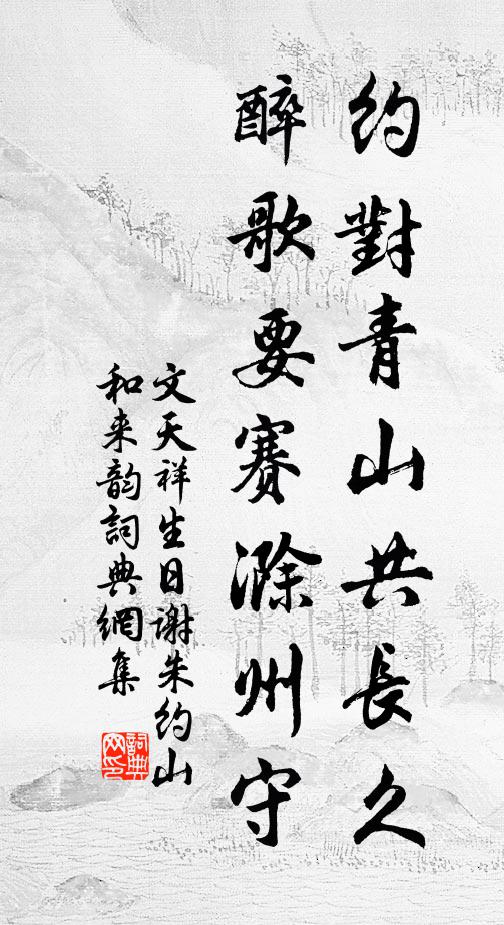 約對青山共長久
醉歌要賽滁州守
文天祥生日謝朱約山
和来韵詞典網集
詞典
网印